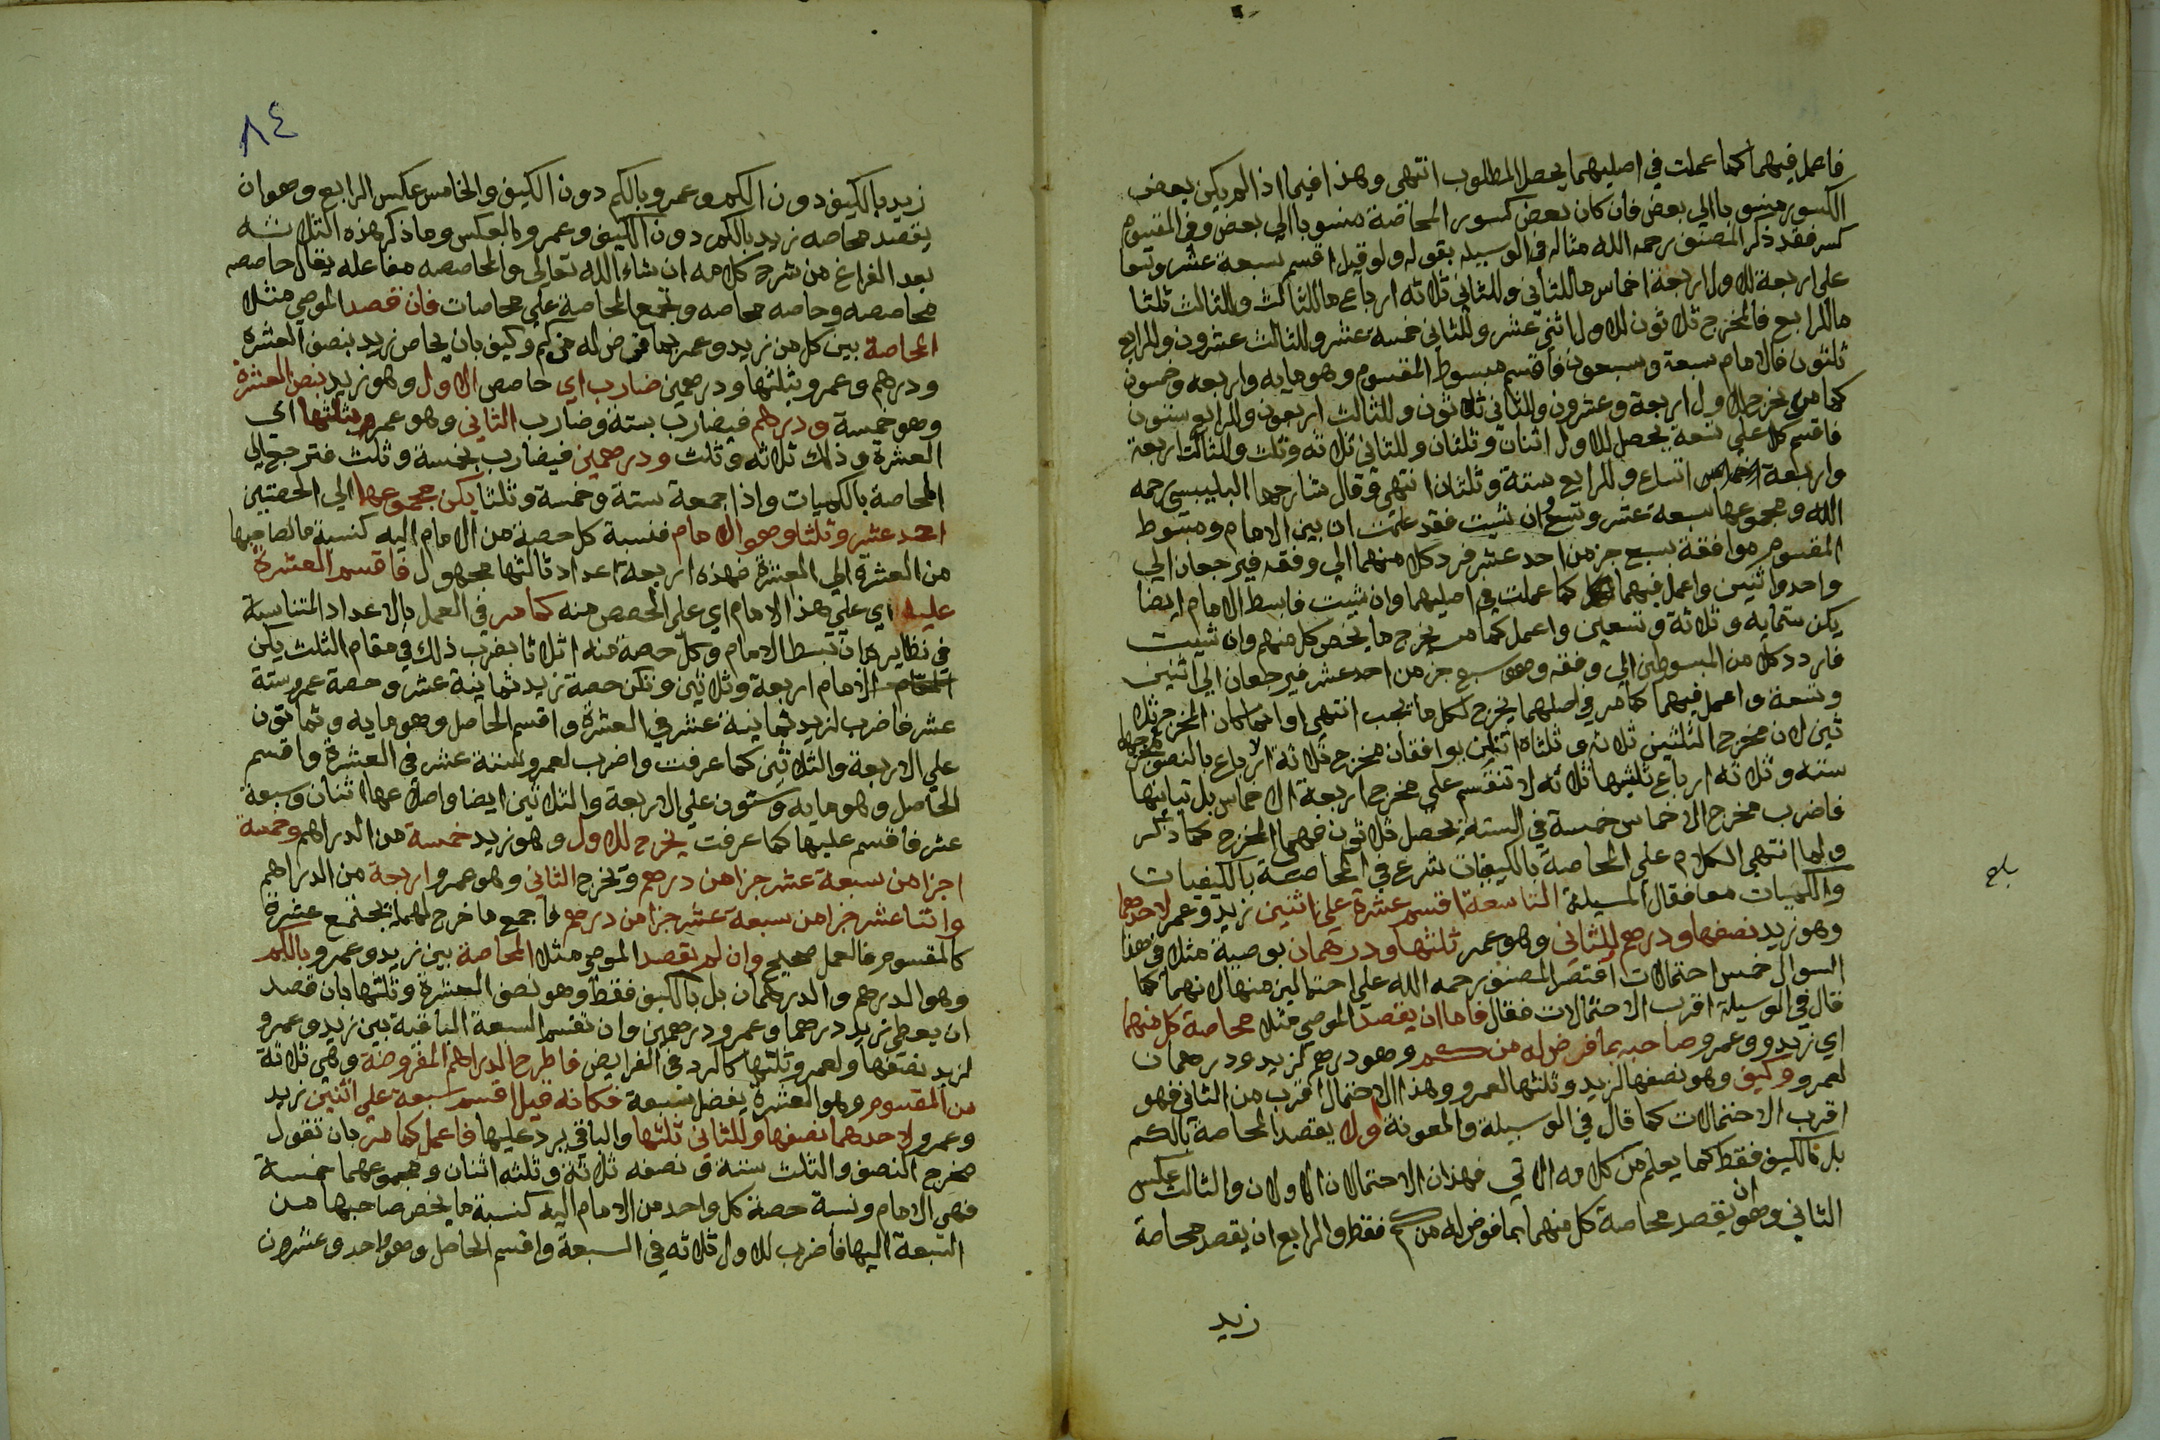 فاعمل فيهما كما عملت في اصليهما يحصل المطلوب انتهى وهذا فيما اذا لم يكن بعض
الكسور منسوبا الي بعض فان كان بعض كسور المحاصة منسوبا الي بعض وفي المقسوم
كسر فقد ذكر المصنف رحمه الله مثاله في الوسيلة بقوله ولو قيل اقسم سبعة عشر وتسعا
علي اربعة للاول اربعة اخماس ما للثاني وللثاني ثلاثة ارباع ما للثالث وللثالث ثلثا
ما للرابع فالمخرج ثلاثون للاول اثني عشر وللثاني خمسة عشر وللثالث عشرون وللرابع
ثلثون فالامام سبعة وسبعون فاقسم مبسوط المقسوم وهو مايه واربعه وخمسون
كما مر يخرج للاول اربعة وعشرون وللثاني ثلاثون وللثالث اربعون وللرابع ستون
فاقسم كل علي تسعة يحصل للاول اثنان وثلثان وللثاني ثلاثه وثلث وللثالث اربعة
واربعة اتساع وللرابع ستة وثلثان انتهى وقال شارحها البلبيسي رحمه
الله ومجموعها سبعة عشر وتسع وان شيت فقد علمت ان بين الامام ومبسوط
المقسوم موافقة بسبع جز من احد عشر فرد كلا منهما الي وفقه فيرجعان الي
واحد واثنين واعمل فيهما كما عملت في اصليهما وان شيت فابسط الامام ايضا
يكن ستمايه وثلاثة وتسعين واعمل كما مر يخرج ما يخص كل منهم وان شيت
فاردد كلا من المبسوطين الي وفقه وهو سبع جز من احد عشر فيرجعان الي اثنين
وتسعة واعمل فيهما كما مر في اصلهما يخرج لكل ما يجب انتهي اوانما كان المخرج ثلا
ثين لان مخرج الثلثين ثلاثة وثلثاه اثنين يوافقان مخرج ثلاثة الارباع بالنصف فمخرجهما
ستة وثلاثه ارباع ثلثيها ثلاثه لا تنقسم علي مخرج اربعة الاخماس بل تباينها
فاضرب مخرج الاخماس خمسة في الستة يحصل ثلاثون فهي المخرج كما ذكر
ولما انتهي الكلام علي المحاصة بالكيفيات شرع في المحاصة بالكيفيات
والكميات معا فقال المسيلة التاسعة اقسم عشرة علي اثنين زيد وعمر لاحدهما
وهو زيد نصفها ودرهم وللثاني وهو عمر ثلثها ودرهمان بوصية مثلا وفي هذا
السوال خمس احتمالات اقتصر المصنف رحمه الله علي احتمالين منها لانهما كما
قال في الوسيلة اقرب الاحتمالات فقال فاما ان يقصد الموصي مثلا محاصة كل منهما
اي زيد وعمرو صاحبه بما فرض له من كم وهو درهم لزيد ودرهمان
لعمرو وكيف وهو نصفها لزيد وثلثها لعمرو وهذا الاحتمال اقرب من الثاني فهو
اقرب الاحتمالات كما قال في الوسيلة والمعونة ولا يقصد المحاصة بالكم
بل بالكيف فقط كما يعلم من كلامه الاتي فهذان الاحتمالان الاولان والثالث عكس
الثاني وهو ان يقصد محاصة كل منهما بما فرض له من كم فقط والرابع ان يقصد محاصة
زيد
بلغ
٨٤
زيد بالكيف دون الكم وعمرو بالكم دون الكيف والخامس عكس الرابع وهو ان
يقصد محاصه زيد بالكم دون الكيف وعمرو بالعكس وما ذكر هذه الثلاثه
بعد الفراغ من شرح كلامه ان شاء الله تعالي والمحاصصه مفاعله يقال حاصصه
محاصصه وحاصه محاصه وتجمع المحاصة علي محاصات فان قصد الموصي مثلا
المحاصة بين كل من زيد وعمر بما فرض له من كم وكيف بان يحاص زيد بنصف العشرة
ودرهم وعمرو بثلثها ودرهمين ضارب اي حاصص الاول وهو زيد بنصف العشرة
وهو خمسة ودرهم فيضارب بستة وضارب الثاني وهو عمرو بثلثها اي
العشرة وذلك ثلاثه وثلث ودرهمين فيضارب بخمسة وثلث فترجع الي
المحاصة بالكميات واذا جمعة ستة وخمسة وثلثا يكن مجموعهما الي الحصتين
احد عشر وثلثا وهو الامام فنسبة كل حصة من الامام اليه كنسبة ما لصاحبها
من العشرة الي العشرة فهذه اربعة اعداد ثالثها مجهول فاقسم العشرة
عليه اي علي هذا الامام اي علي الحصص منه كما مر في العمل بالاعداد المتناسبة
في نظايره بان تبسط الامام وكل حصة منه اثلاثا بضرب ذلك في مقام الثلث يكن
الامام اربعة وثلاثين وتكن حصة زيد ثمانية عشر وحصة عمر ستة
عشر فاضرب لزيد ثمانية عشر في العشرة واقسم الحاصل وهو مايه وثمانون
علي الاربعة والثلاثين كما عرفت واضرب لعمرو الستة عشر في العشرة واقسم
الحاصل وهو مايه وستون علي الاربعة والثلاثين ايضا واضلاعها اثنان وسبعة
عشر فاقسم عليها كما عرفت يخرج للاول وهو زيد خمسة من الدراهم وخمسة
اجزا من سبعة عشر جزا من درهم ويخرج الثاني وهو عمرو اربعة من الدراهم
واثنا عشر جزا من سبعة عشر جزا من درهم فاجمع ما خرج لهما يجتمع عشرة
كالمقسوم فالعمل صحيح وان لم يقصد الموصي مثلا المحاصة بين زيد وعمرو بالكم
وهو الدرهم والدرهمان بل بالكيف فقط وهو نصف العشرة وثلثها بان قصد
ان يعطي زيد درهما وعمرو درهمين وان تقسم السبعة الباقية بين زيد وعمرو
لزيد نصفها ولعمرو ثلثها كالرد في الفرايض فاطرح الدراهم المفروضة وهي ثلاثة
من المقسوم وهو العشرة يفضل سبعة فكانه قيل اقسم سبعة علي اثنين زيد
وعمرو لاحدهما نصفها وللثاني ثلثها والباقي يرد عليها فاعمل كما مر بان تقول
مخرج النصف والثلث ستة ونصفه ثلاثة وثلثه اثنان ومجموعهما خمسة
فهي الامام ونسبة حصة كل واحد من الامام اليه كنسبة ما يخص صاحبها من
السبعة اليها فاضرب للاول ثلاثه في السبعة واقسم الحاصل وهو واحد وعشرون